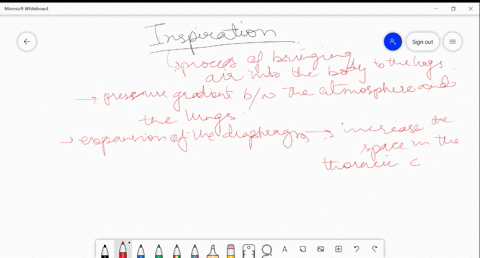 Microsoft Whiteboard
Sign out
Inspiration
process of bringing
air into the body to the lugs.
→ pressure gradient b/w the atmosphere and
the lungs.
→ expansion of the diaphragm → increase the
space in the
thoracic c